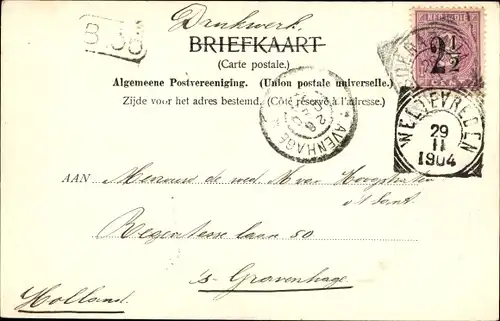 Drukwerk
BRIEFKAART
(Carte postale.)
Algemeene Postvereeniging. (Union postale universelle.)
Zijde voor het adres bestemd. (Côté réservé à l'adresse.)
2½
WELTEVREDEN
29
11
1904
AVENHAGE
AAN Mevrouw de wed. M van Hoogstraten
Regentesse laan 50
's-Gravenhage.
Holland.